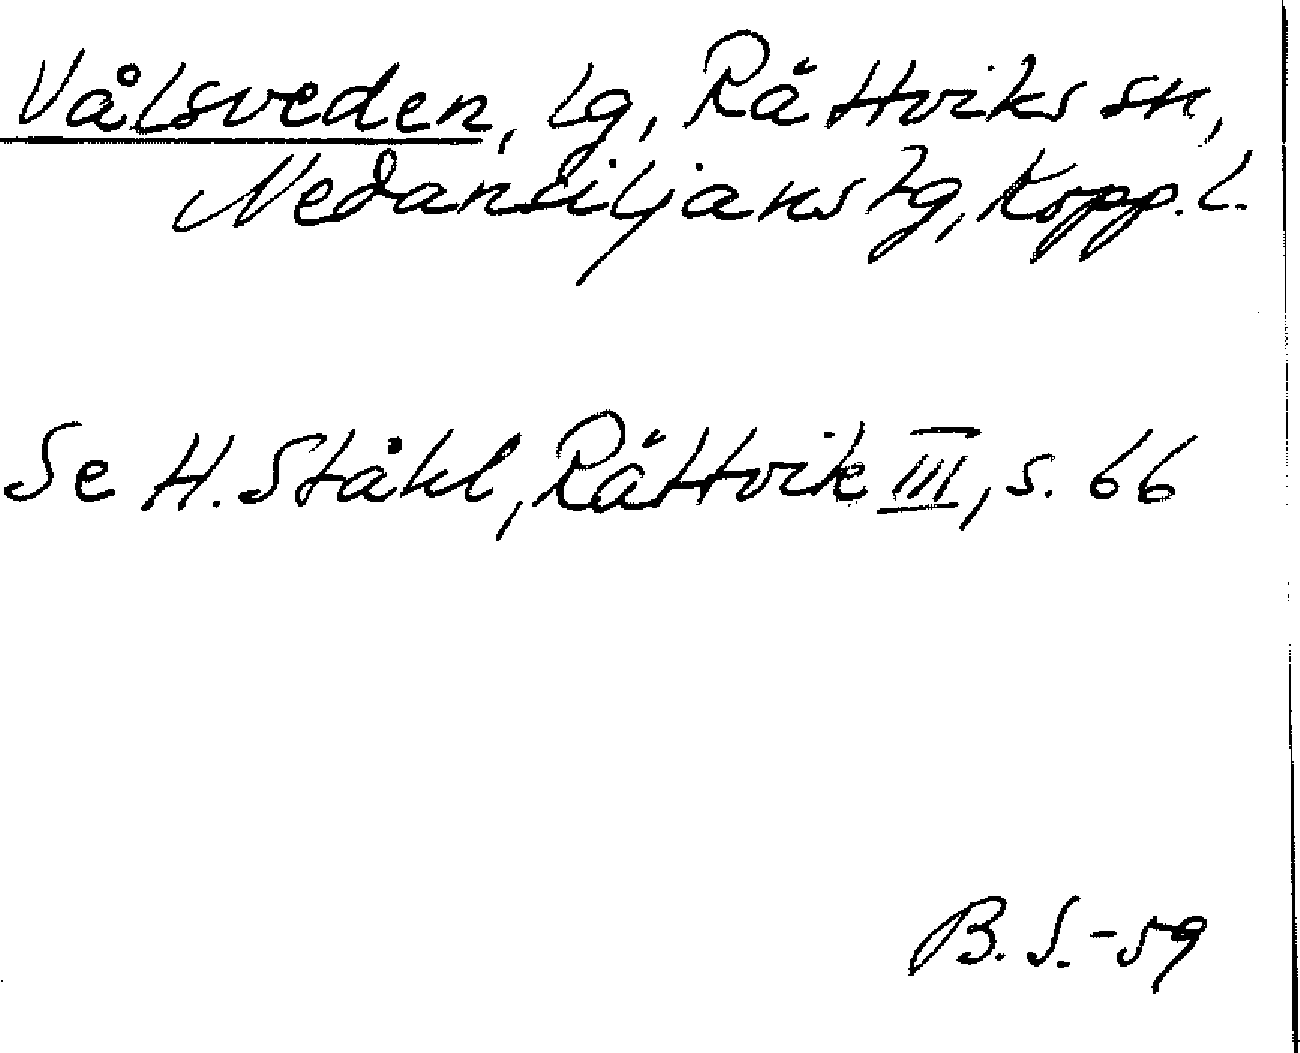 Vålsveden, lg, Rättviks sn,
Nedansiljans tg, Kopp. l.
Se H. Ståhl, Rättvik III, s. 66
B. S. -59